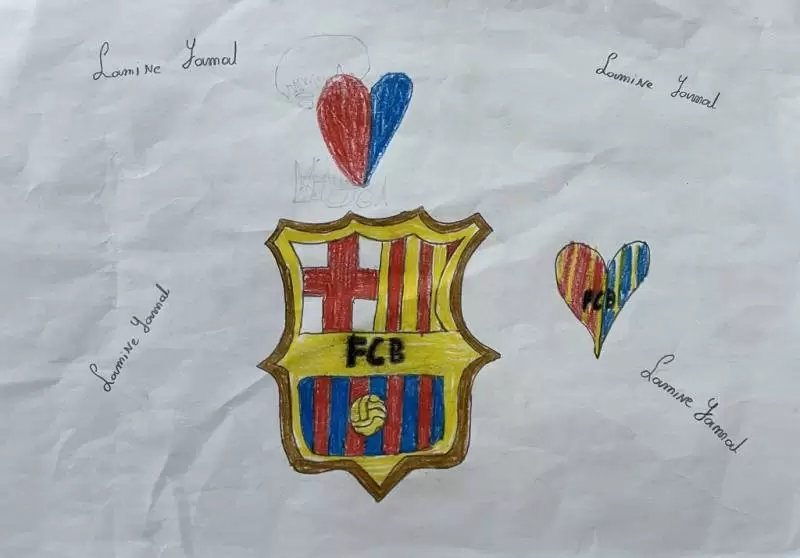 Lamine Yamal
Lamine Yamal
FCB
FCB
Lamine Yamal
Lamine Yamal